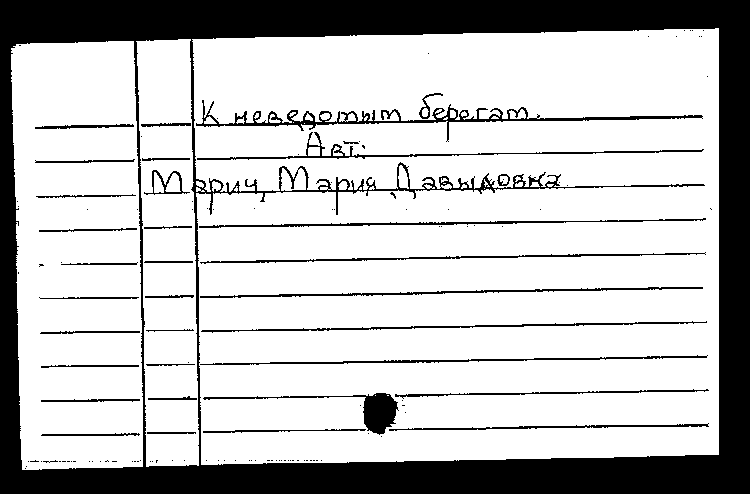 К неведомым берегам.
Авт:
Марич, Мария Давыдовна